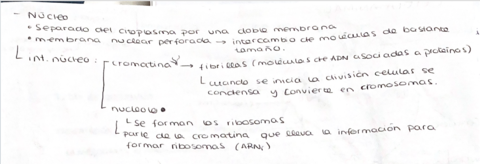 - Núcleo
• Separado del citoplasma por una doble membrana
• membrana nuclear perforada → intercambio de moléculas de bastante
tamaño.
int. núcleo: cromatina → fibrillas (moléculas de ADN asociadas a proteínas)
cuando se inicia la división celular se
condensa y convierte en cromosomas.
nucleolo
se forman los ribosomas
parte de la cromatina que lleva la información para
formar ribosomas (ARNr)